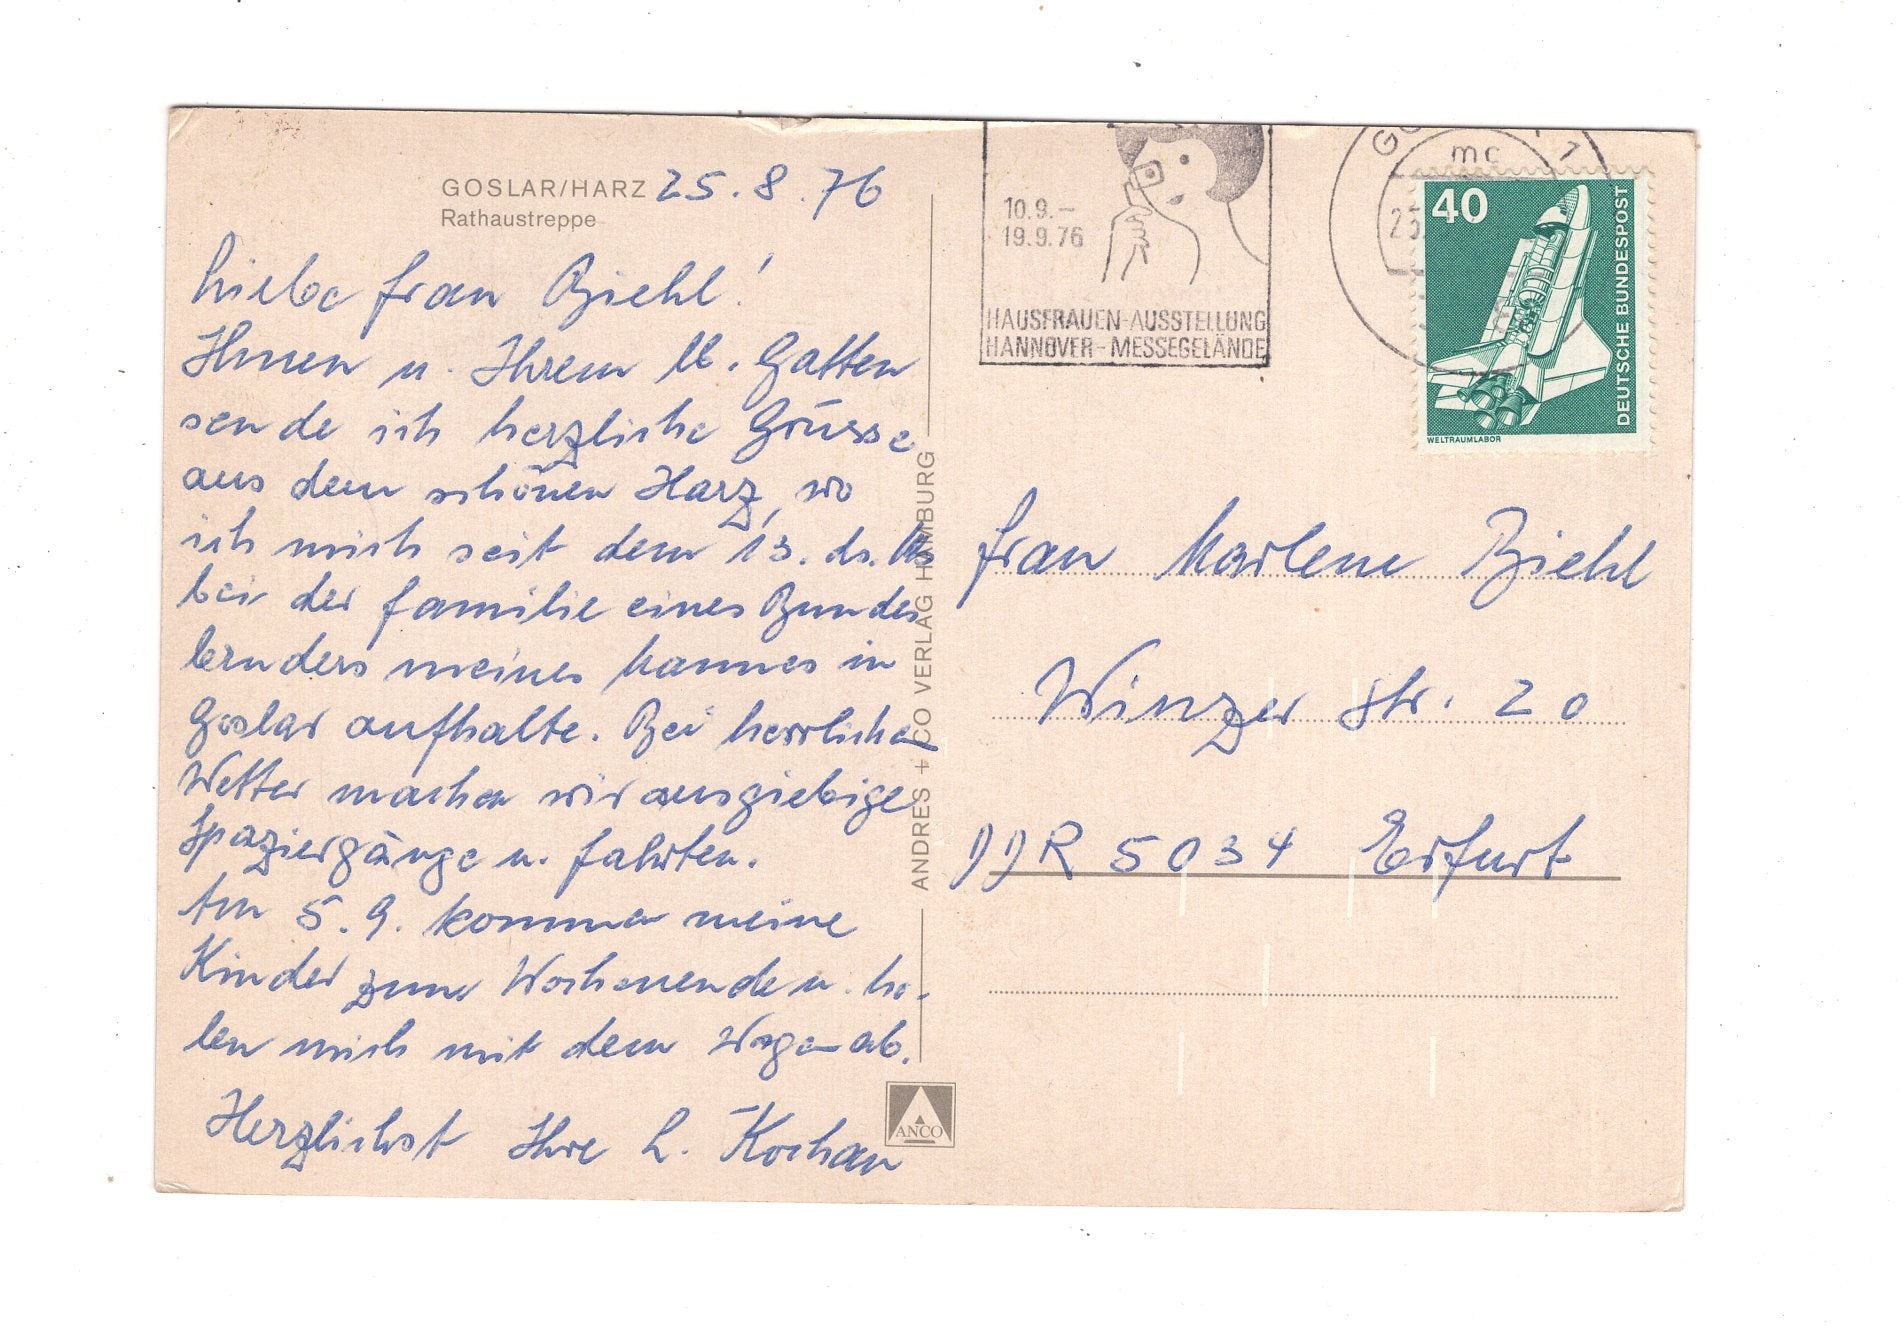 GOSLAR/HARZ 25.8.76
Rathaustreppe
Liebe Frau Biehl!
Ihnen u. Ihrem lb. Gatten
sende ich herzliche Grüsse
aus dem schönen Harz, wo
ich mich seit dem 13. ds. Mts
bei der Familie eines Bundes
bruders meines Mannes in
Goslar aufhalte. Bei herrlichem
Wetter machen wir ausgiebige
Spaziergänge u. Fahrten.
Am 5.9. kommen meine
Kinder zum Wochenende u. ho-
len mich mit dem Wagen ab.
Herzlichst Ihre L. Kochan
ANDRES + CO VERLAG HAMBURG
ANCO
10.9.–
19.9.76
HAUSFRAUEN-AUSSTELLUNG
HANNOVER-MESSEGELÄNDE
mc
1
25
40
DEUTSCHE BUNDESPOST
WELTRAUMLABOR
Frau Marlene Biehl
Winzer Str. 20
DDR 5034 Erfurt